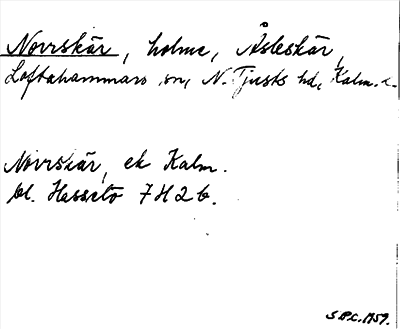 Norrskär, holme, Åsleskär,
Loftahammars sn, N. Tjusts hd, Kalm. l.
Norrskär, ek Kalm.
bl. Hasselö 7H2b.
S.P.C. 1959.